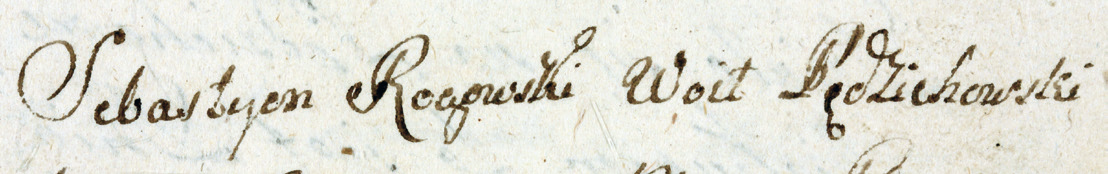 Sebastyen Rogowski Woit Pędzichowski